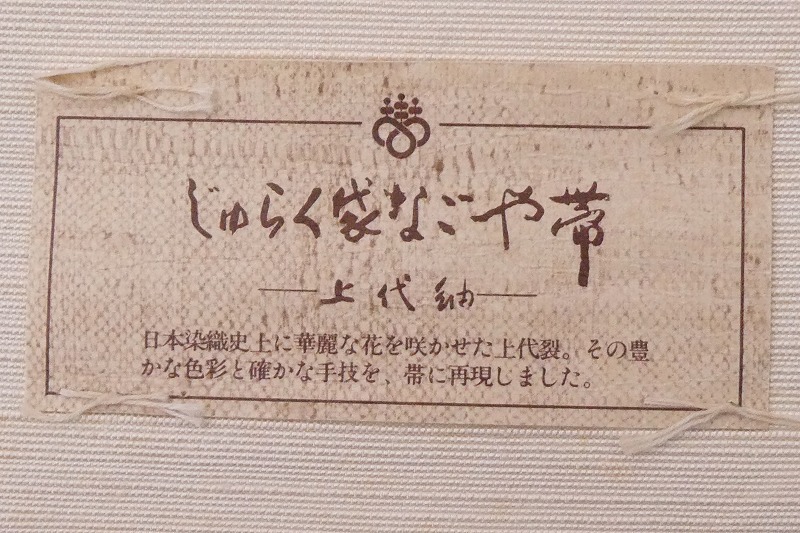 じゅらく袋なごや帯
上代紬
日本染織史上に華麗な花を咲かせた上代裂。その豊
かな色彩と確かな手技を、帯に再現しました。